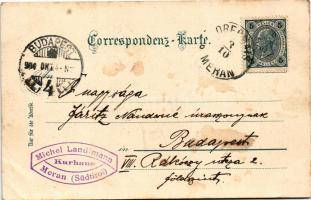 Correspondenz-Karte.
BUDAPEST
904 OKT
4
MERAN
Nur für die Adresse
nagysága
Nándorné
Budapest
VII. Rákóczy utcza 2.
földszint
Michel Landtmann
Kurhaus
Meran (Südtirol)